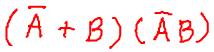 (A̅ + B)(A̅B)